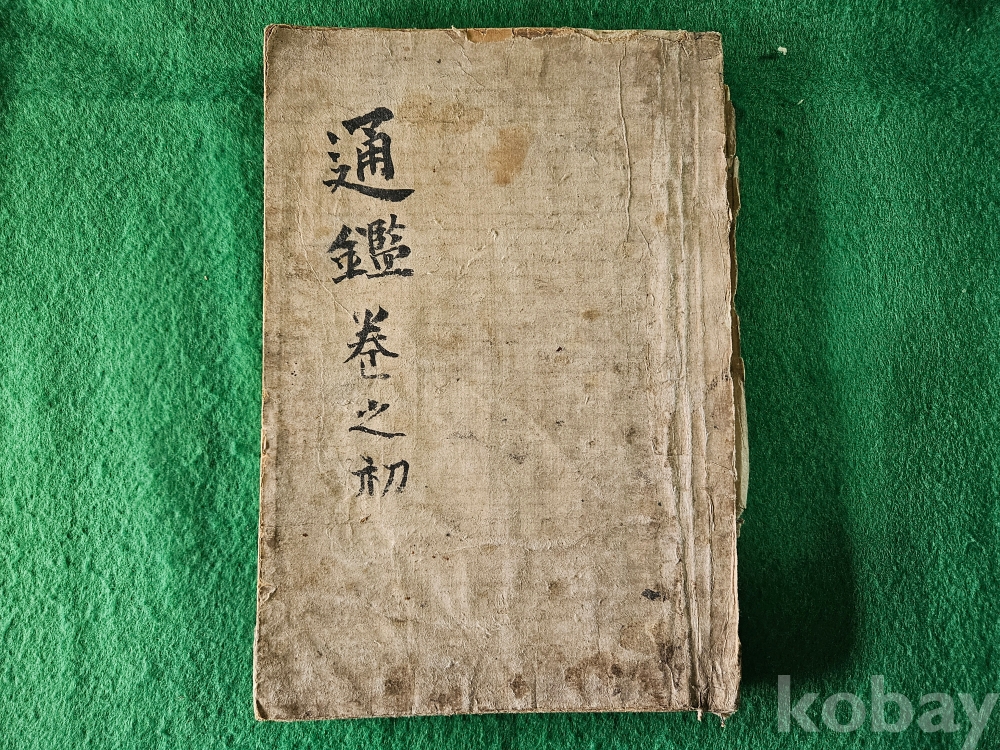 通鑑 卷之初
kobay